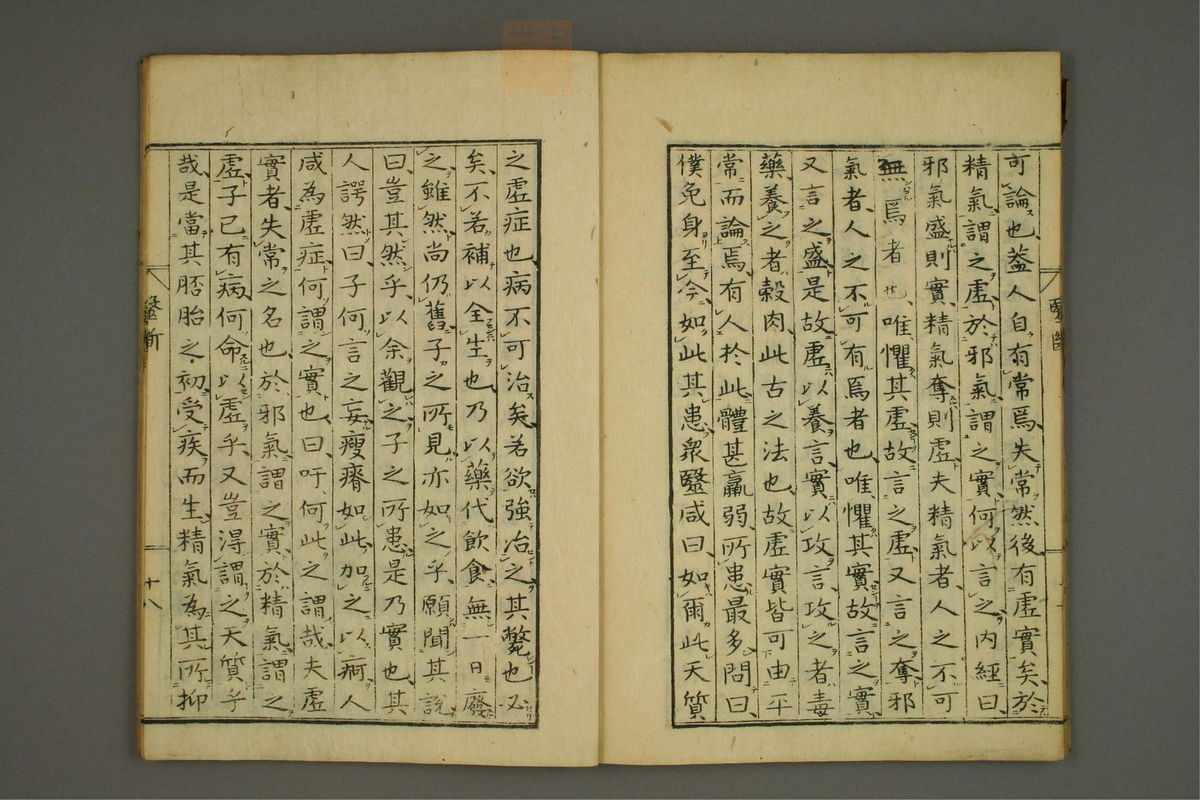 可論也蓋人自有常焉失常然後有虛實矣於
精氣謂之虛於邪氣謂之實何以言之內經曰
邪氣盛則實精氣奪則虛夫精氣者人之不可
無焉者也唯懼其虛故言之虛又言之奪邪
氣者人之不可有焉者也唯懼其實故言之實
又言之盛是故虛以養言實以攻言攻之者毒
藥養之者穀肉此古之法也故虛實皆可由平
常而論焉有人於此體甚羸弱所患最多問曰
僕免身至今如此其患衆毉咸曰如爾此天質
之虛症也病不可治矣若欲強治之其斃也必
矣不若補以全生也乃以藥代飲食無一日廢
之雖然尚仍舊子之所見亦如之乎願聞其說
曰豈其然乎以余觀之子之所患是乃實也其
人諤然曰子何言之妄瘦瘠如此加之以痾人
咸為虛症何謂之實也曰吁何此之謂哉夫虛
實者失常之名也於邪氣謂之實於精氣謂之
虛子已有病何命以虛乎又豈得謂之天質乎
哉是當其胚胎之初受疾而生精氣為其所抑
毉斷
十八